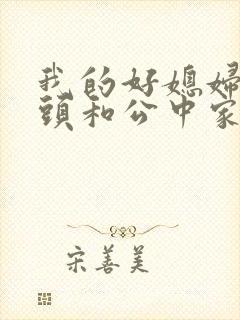 我的好媳婦
頭和公中家
宋善美